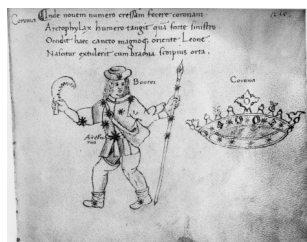 Corona Unde novem numero cressam fecere coronam
Artophylax humero tangit qua forte sinistro
Occidit haec cancro magnoq; oriente Leone
Nascitur extulerit cum brachia scorpius orta.
Bootes
Corona